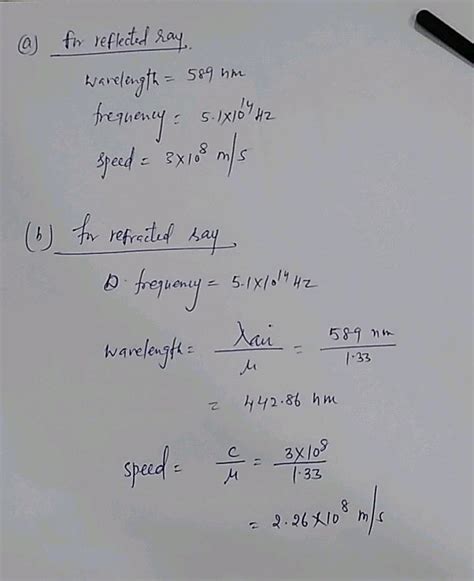 (a) for reflected ray.
wavelength = 589 nm
frequency = 5.1×10¹⁴ Hz
speed = 3×10⁸ m/s
(b) for refracted ray
frequency = 5.1×10¹⁴ Hz
wavelength = λair/μ = 589 nm/1.33
= 442.86 nm
speed = c/μ = 3×10⁸/1.33
= 2.26×10⁸ m/s